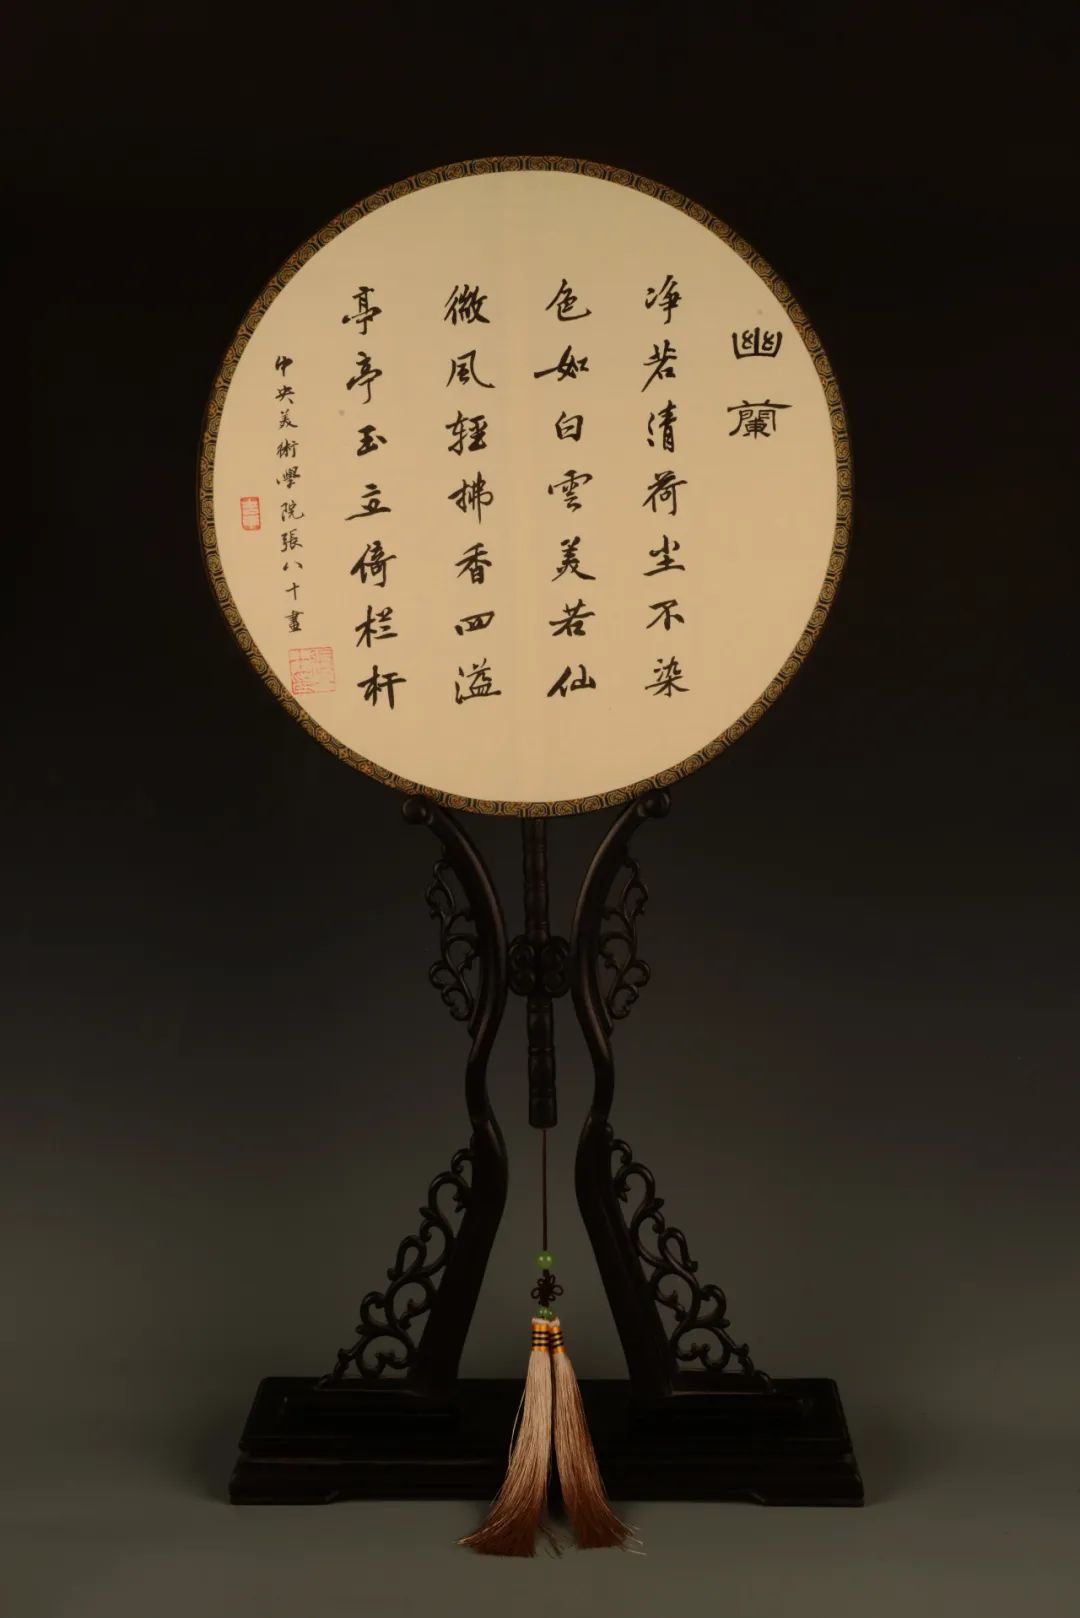 幽蘭
净若清荷尘不染
色如白雲美若仙
微風輕拂香四溢
亭亭玉立倚栏杆
中央美術學院張八十畫